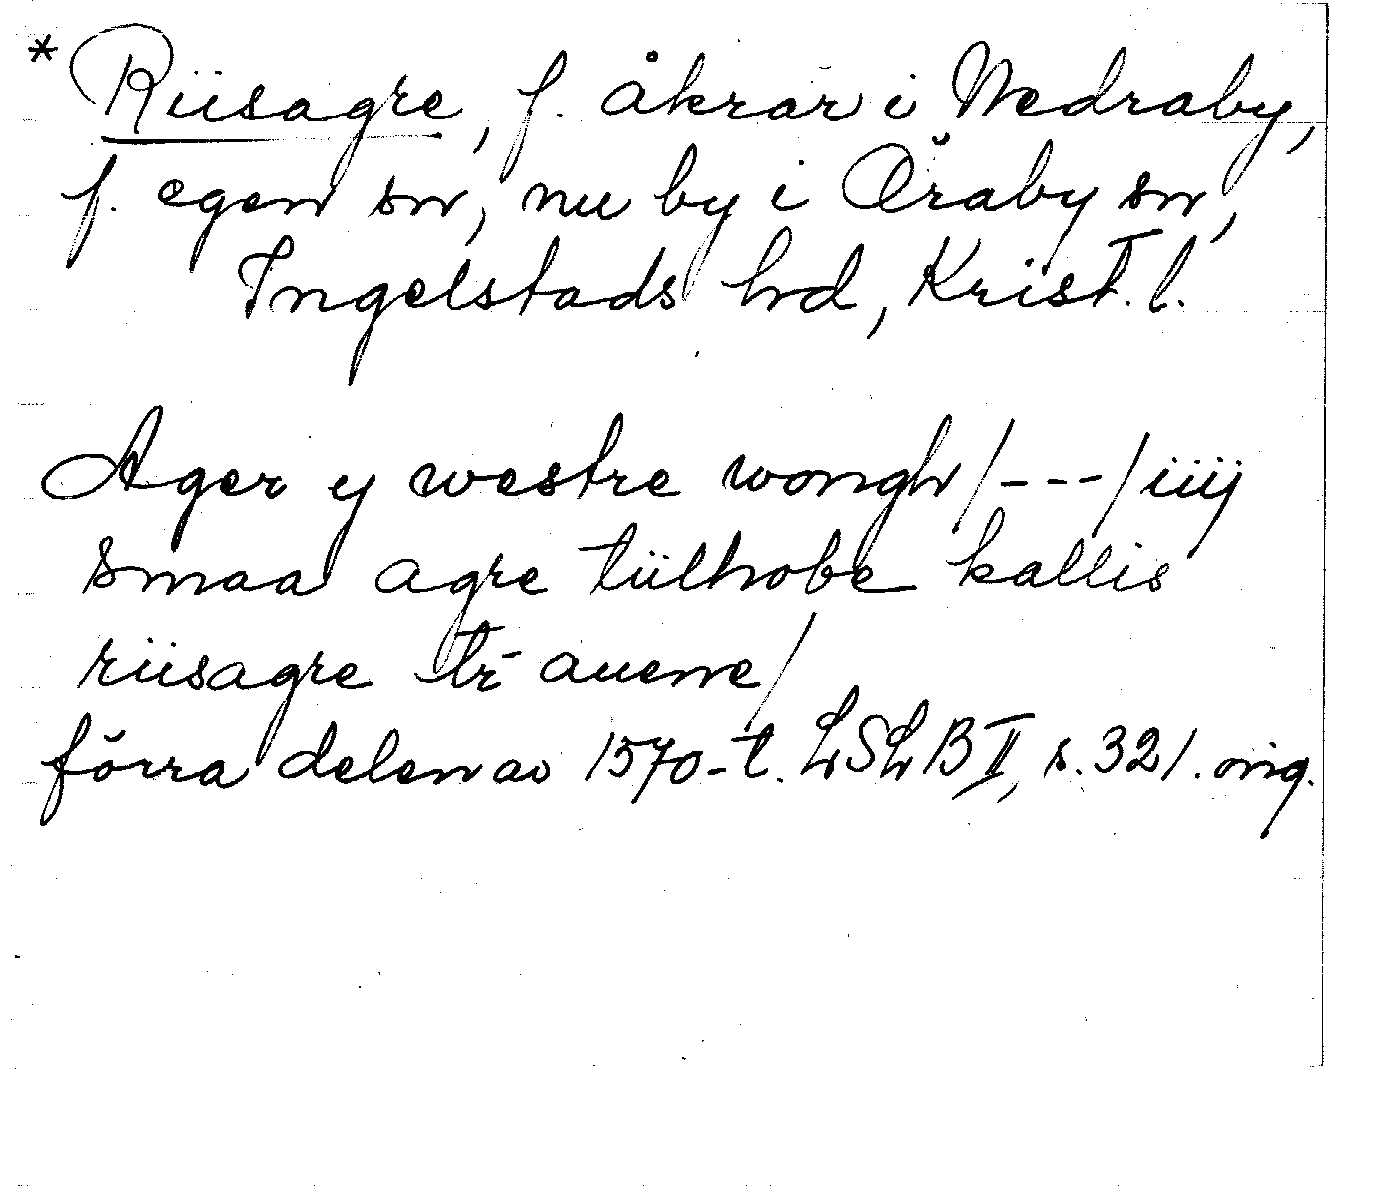 * Riisagre, f. åkrar i Nedraby,
f. egen sn, nu by i Öraby sn,
Ingelstads hd, Krist. l.
Ager y westre wongh /---/ iiij
smaa agre tiilhobe kallis
riisagre auene /
förra delen av 1570-t. LSLB II, s. 321. orig.